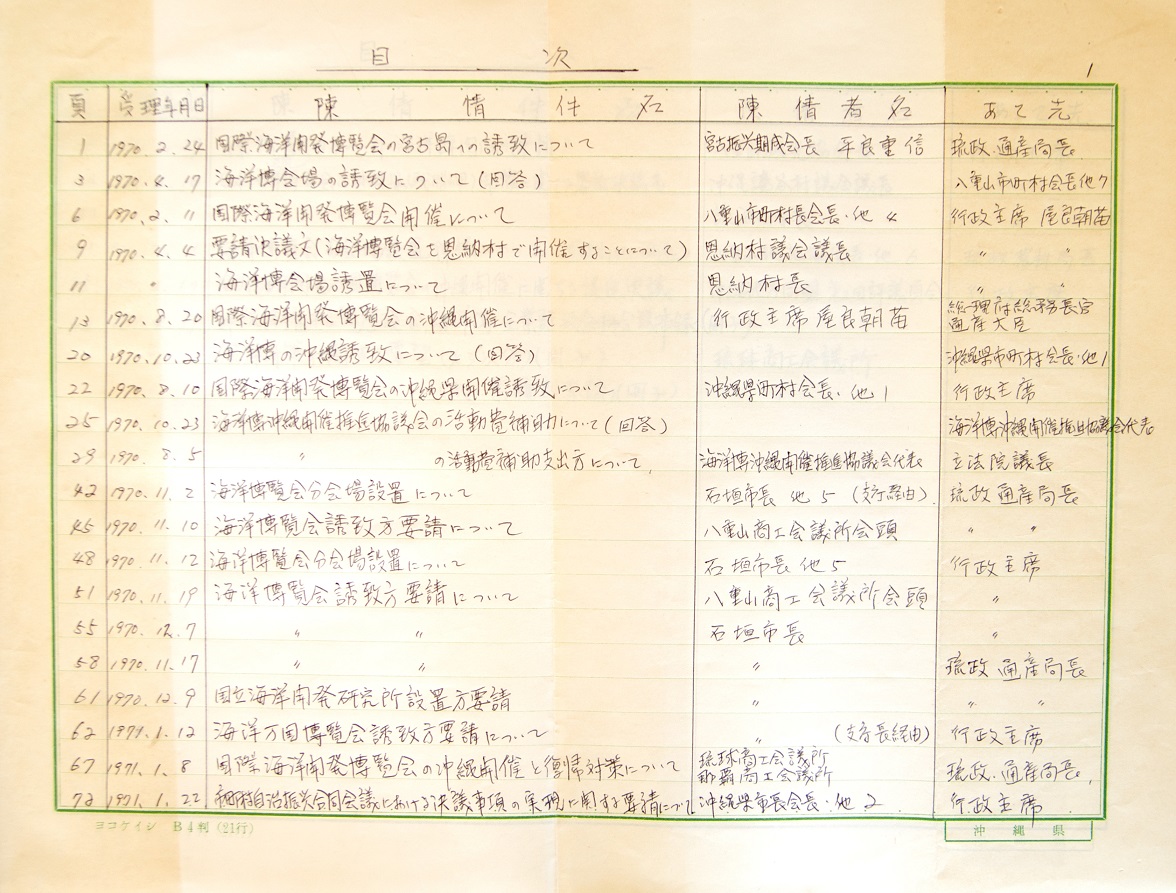 目次
1
頁 受理年月日 陳情件名 陳情者名 あて先
1 1970.2.24 国際海洋開発博覧会の宮古島への誘致について 宮古振興期成会長 平良重信 琉政 通産局長
3 1970.4.17 海洋博会場の誘致について(回答) 八重山市町村会長他7
6 1970.2.11 国際海洋開発博覧会開催について 八重山市町村長会長・他4 行政主席 屋良朝苗
9 1970.4.4 要請決議文(海洋博覧会を恩納村で開催することについて) 恩納村議会議長 〃 〃
11 〃 海洋博会場誘置について 恩納村長 〃 〃
13 1970.8.20 国際海洋開発博覧会の沖縄開催について 行政主席屋良朝苗 総理府総務長官
通産大臣
20 1970.10.23 海洋博の沖縄誘致について(回答) 沖縄県市町村会長・他1
22 1970.8.10 国際海洋開発博覧会の沖縄県開催誘致について 沖縄県町村会長・他1 行政主席
25 1970.10.23 海洋博沖縄開催推進協議会の活動費補助について(回答) 海洋博沖縄開催推進協議会代表
29 1970.8.5 〃 の活動費補助支出方について 海洋博沖縄開催推進協議会代表 立法院議長
42 1970.11.2 海洋博覧会分会場設置について 石垣市長 他5 (支庁経由) 琉政 通産局長
45 1970.11.10 海洋博覧会誘致方要請について 八重山商工会議所会頭 〃 〃
48 1970.11.12 海洋博覧会分会場設置について 石垣市長 他5 行政主席
51 1970.11.19 海洋博覧会誘致方要請について 八重山商工会議所会頭 〃
55 1970.12.7 〃 〃 石垣市長 〃
58 1970.11.17 〃 〃 〃 琉政 通産局長
61 1970.12.9 国立海洋開発研究所設置方要請 〃 〃 〃
62 1971.1.12 海洋万国博覧会誘致方要請について 〃 (支庁長経由) 行政主席
67 1971.1.8 国際海洋開発博覧会の沖縄開催と復帰対策について 琉球商工会議所
那覇商工会議所 琉政・通産局長
72 1971.1.22 市町村自治振興合同会議における決議事項の実現に関する要請について 沖縄県市長会長・他2 行政主席
ヨコケイシ B4判(21行)
沖縄県